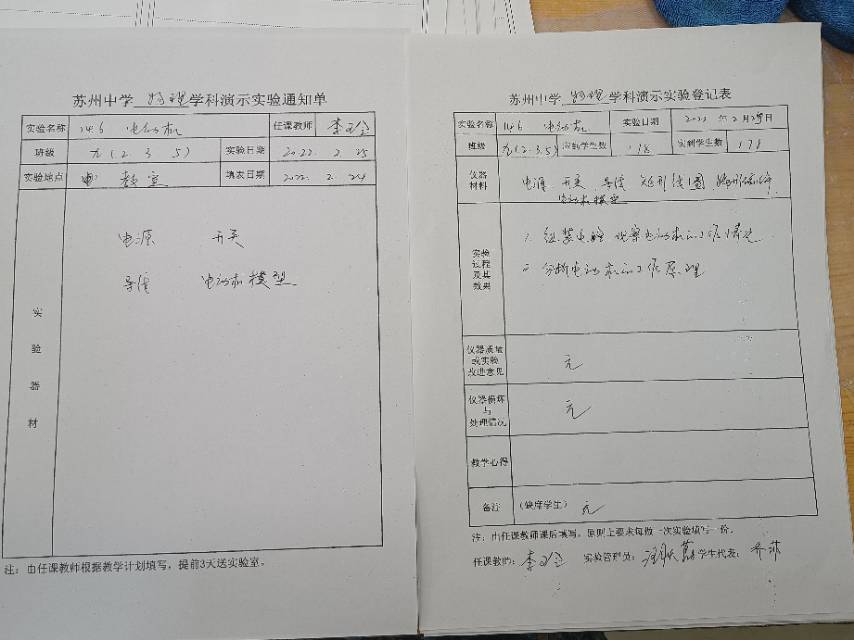 苏州中学 物理 学科演示实验通知单
实验名称 14.6 电动机 任课教师 李
班级 九(2 3 5) 实验日期 2022. 2. 25
实验地点 教室 填表日期 2022. 2. 24
实验器材
电源 开关
导线 电动机模型
注：由任课教师根据教学计划填写，提前3天送实验室。
苏州中学 物理 学科演示实验登记表
实验名称 14.6 电动机 实验日期 2022年2月25日
班级 九(2.3.5) 应到学生数 178 实到学生数 178
仪器材料 电源 开关 导线 矩形线圈
电动机模型
实验过程及其效果
1. 组装电路 观察电动机的工作情况
2. 分析电动机的工作原理
仪器质量或实验改进意见 无
仪器损坏与处理情况 无
教学心得
备注 (缺席学生) 无
注：由任课教师课后填写，原则上要求每做一次实验填写一份。
任课教师：李 实验管理员： 学生代表：